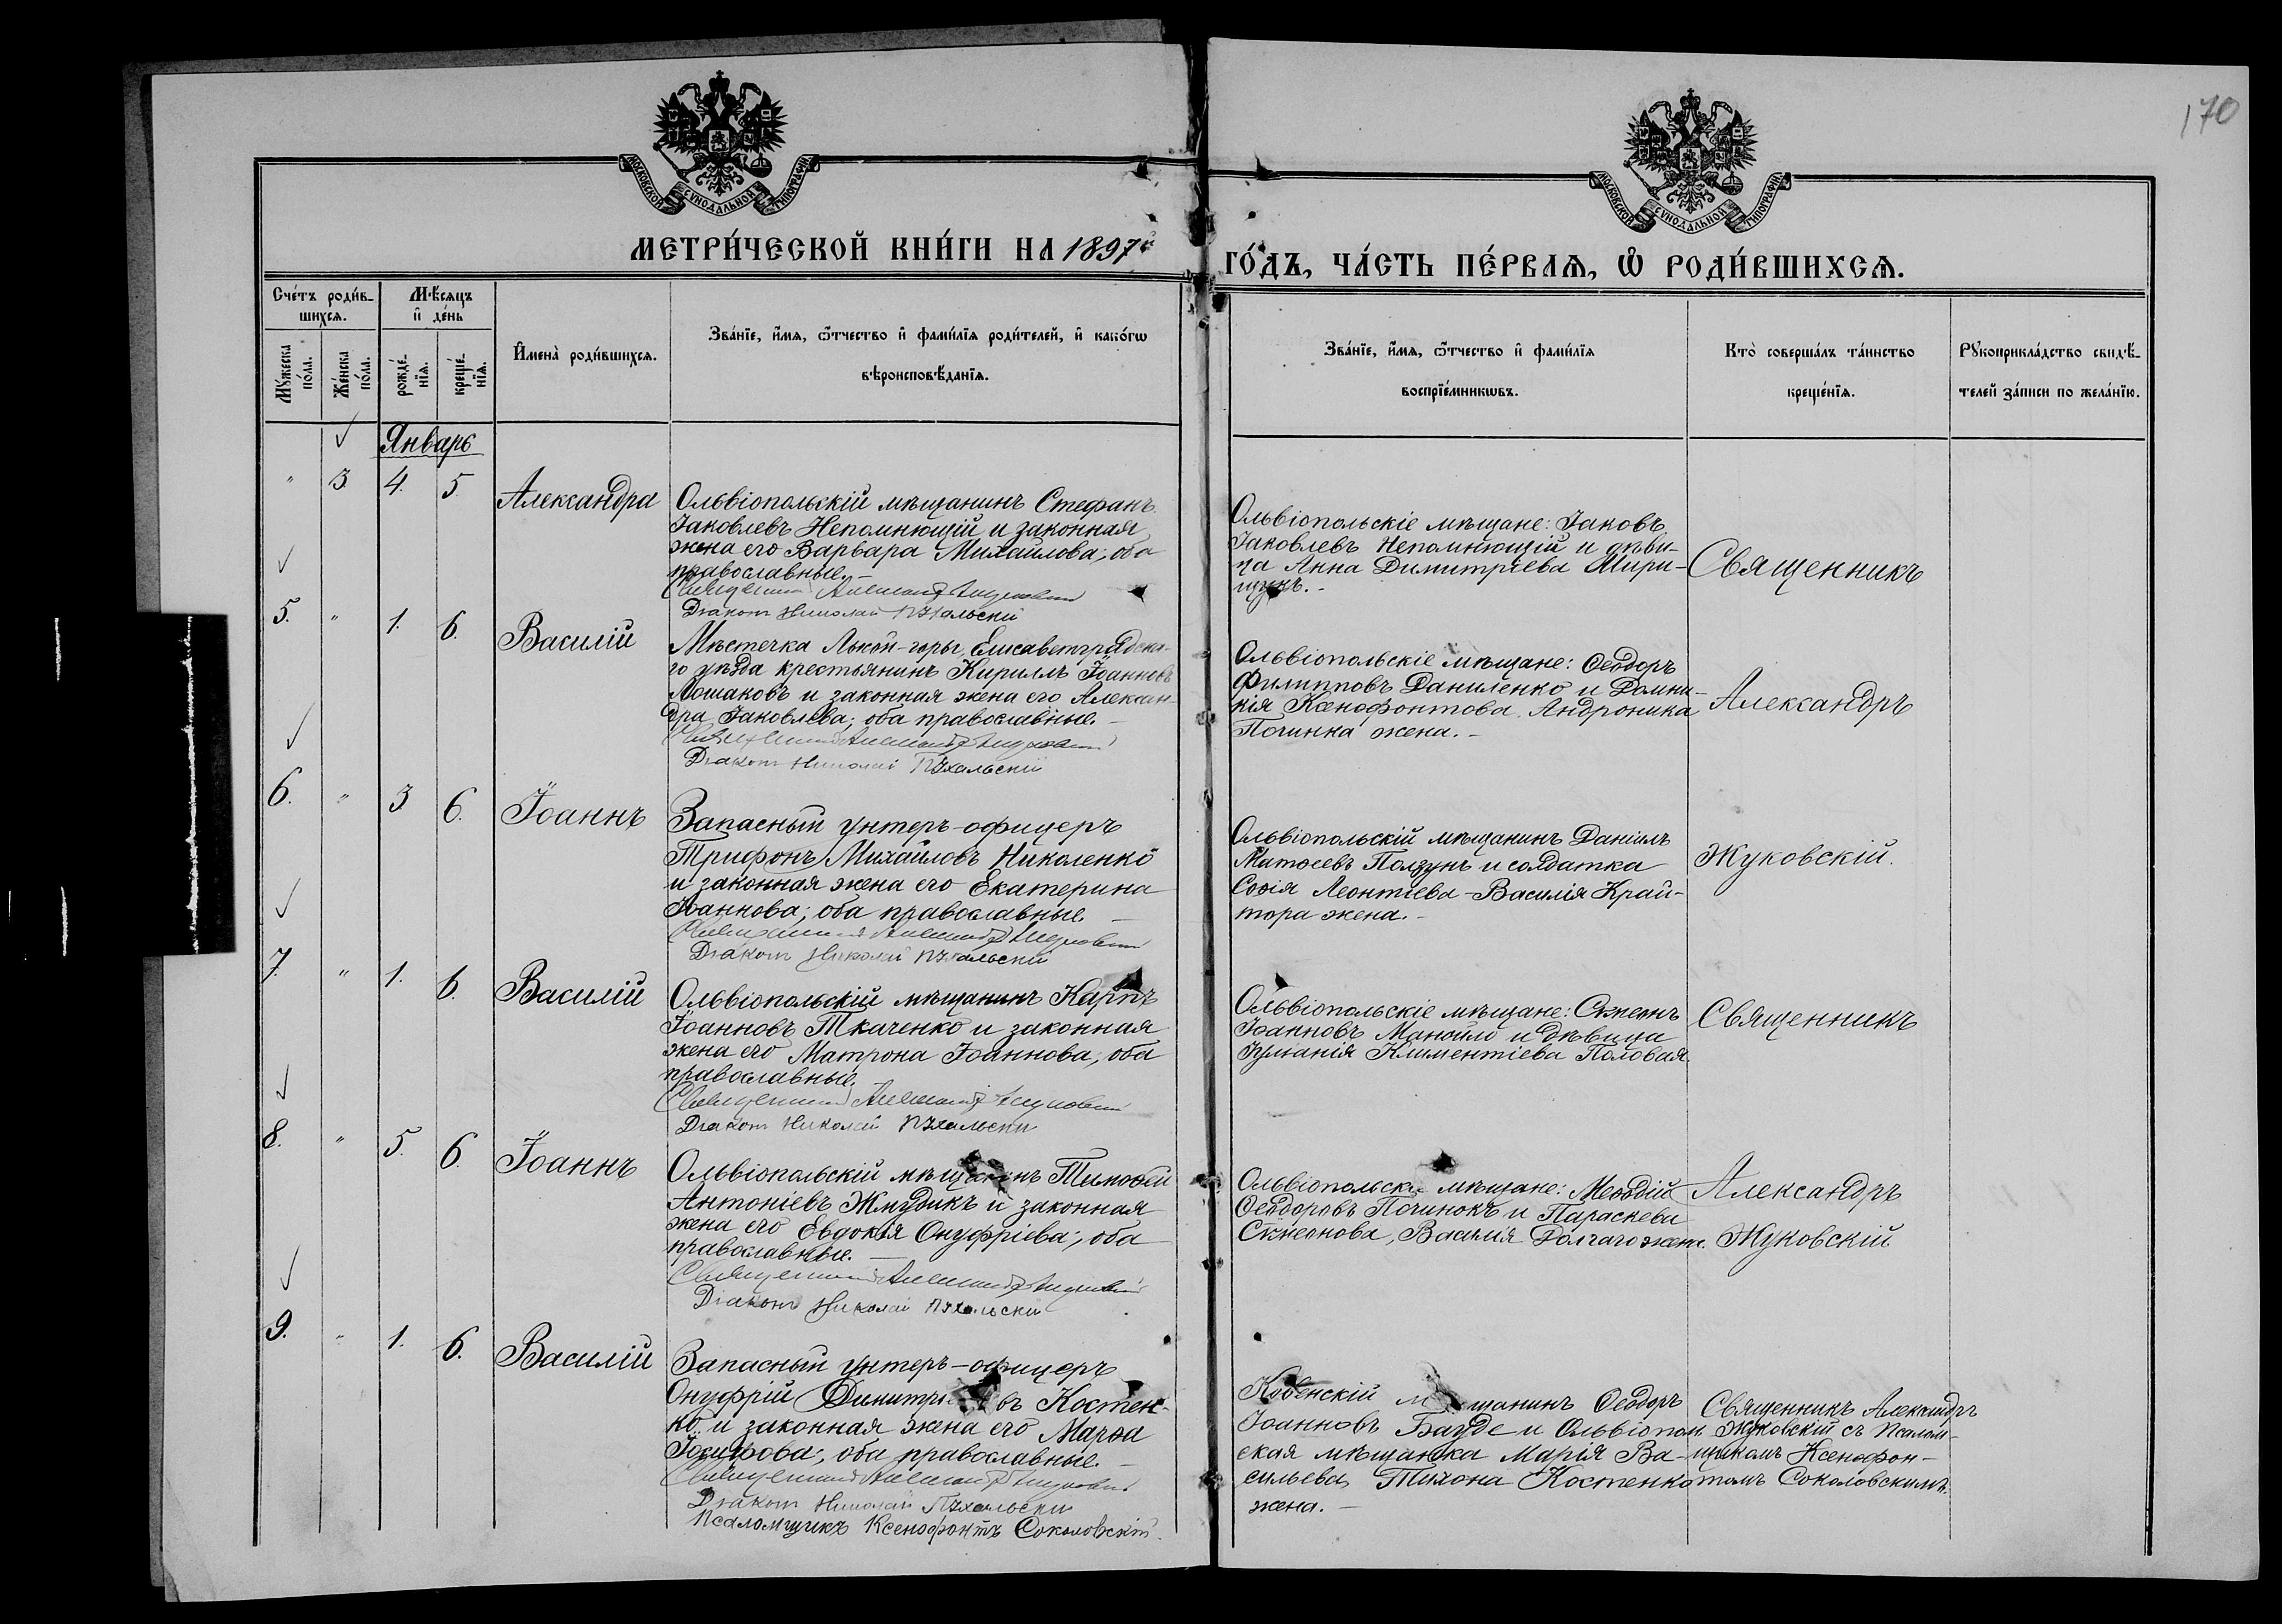 170
МОСКОВСКОЙ СѴНОДАЛЬНОЙ ТИПОГРАФІИ
МОСКОВСКОЙ СѴНОДАЛЬНОЙ ТИПОГРАФІИ
МЕТРИ́ЧЕСКОЙ КНИ́ГИ НА 1897й
ГО́ДЪ, ЧА́СТЬ ПЕ́РВАѦ, Ѽ РОДИ́ВШИХСѦ.
Сче́тъ роди́в-
шихсѧ.
Мѣ́сѧцъ
и҆ де́нь
Мꙋ́жеска по́ла.
Же́нска по́ла.
рожде́-нїѧ.
креще́-нїѧ.
И҆мена̀ роди́вшихсѧ.
Зва́нїе, и҆́мѧ, ѻ҆́тчество и҆ фами́лїѧ роди́телей, и҆ како́гѡ
вѣроисповѣ́данїѧ.
Зва́нїе, и҆́мѧ, ѻ҆́тчество и҆ фами́лїѧ
воспрїе́мникѡвъ.
Кто̀ соверша́лъ та́инство
креще́нїѧ.
Рꙋкоприкла́дство свидѣ́-
телей за́писи по жела́нїю.
Январь
" 3. 4. 5. Александра
Ольвіопольскій мѣщанинъ Стефанъ
Іаковлевъ Непомнющій и законная
жена его Варвара Михайлова; оба
православные.-
Священникъ Александръ Жуковскій
Діаконъ Николай Пухальскій
Ольвіопольскіе мѣщане: Іаковъ
Іаковлевъ Непомнющій и дѣви-
ца Анна Димитріева Мири-
щукъ.-
Священникъ
5. " 1. 6. Василій
Мѣстечка Лысой-горы, Елисаветградска-
го уѣзда крестьянинъ Кириллъ Іоанновъ
Лошаковъ и законная жена его Алексан-
дра Іаковлева; оба православные.-
Священникъ Александръ Жуковскій
Діаконъ Николай Пухальскій
Ольвіопольскіе мѣщане: Ѳеодоръ
Филипповъ Даниленко и Домни-
кія Ксенофонтова Андроника
Починка жена.-
Александръ
6. " 3 6. Іоаннъ
Запасный унтеръ-офицеръ
Трифонъ Михайловъ Николенко
и законная жена его Екатерина
Іоаннова; оба православные.-
Священникъ Александръ Жуковскій
Діаконъ Николай Пухальскій
Ольвіопольскій мѣщанинъ Даніилъ
Матѳеевъ Ползунъ и солдатка
Софія Леонтіева-Василія Край-
тора жена.-
Жуковскій.
7. " 1. 6. Василій
Ольвіопольскій мѣщанинъ Карпъ
Іоанновъ Ткаченко и законная
жена его Матрона Іоаннова; оба
православные.
Священникъ Александръ Жуковскій
Діаконъ Николай Пухальскій
Ольвіопольскіе мѣщане: Сѵмеонъ
Іоанновъ Манойло и дѣвица
Іуліанія Климентіева Половая
Священникъ
8. " 5. 6. Іоаннъ
Ольвіопольскій мѣщанинъ Тимоѳей
Антоніевъ Жмудикъ и законная
жена его Евдокія Онуфріева; оба
православные.-
Священникъ Александръ Жуковскій
Діаконъ Николай Пухальскій
Ольвіопольскіе мѣщане: Меѳодій
Ѳеодоровъ Починокъ и Параскева
Сѵмеонова, Василія Долгаго жена.
Александръ
Жуковскій
9. " 1. 6. Василій
Запасный унтеръ-офицеръ
Онуфрій Димитріевъ Костен-
ко и законная жена его Марѳа
Іосифова; оба православные.-
Священникъ Александръ Жуковскій
Діаконъ Николай Пухальскій
Псаломщикъ Ксенофонтъ Соколовскій.
Ковенскій мѣщанинъ Ѳеодоръ
Іоанновъ Бауде и Ольвіополь
ская мѣщанка Марія Ва-
сильева, Тихона Костенко
жена.-
Священникъ Александръ
Жуковскій съ Псалом-
щикомъ Ксенофон-
томъ Соколовскимъ.